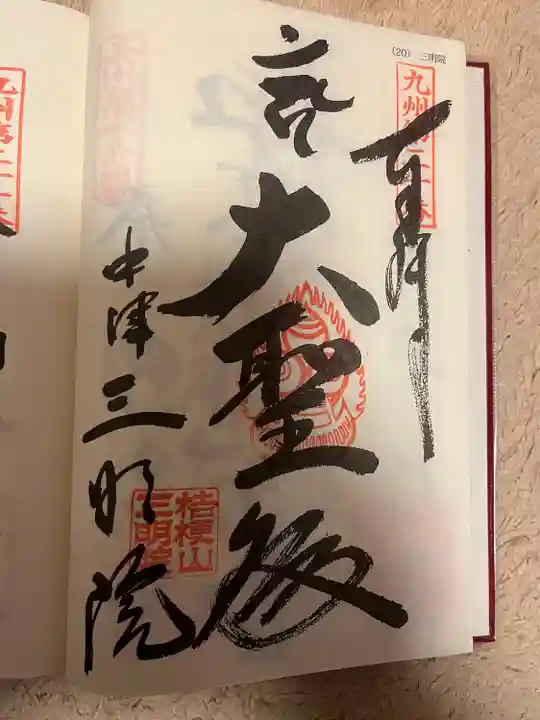 (20) 三明院
九州第二十番
奉拝
大聖殿
中津三明院
桔梗山
三明院